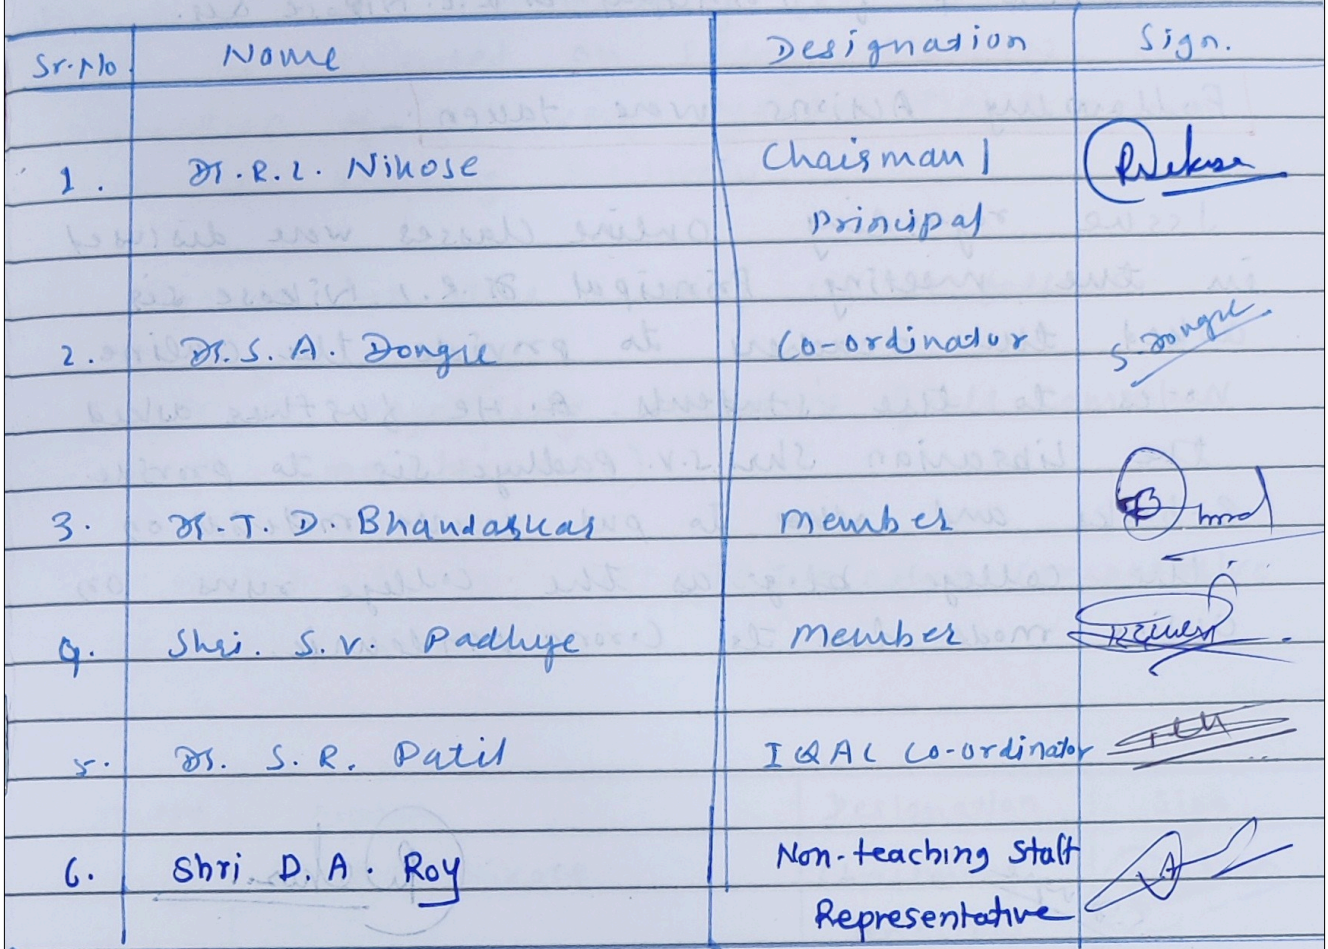 Sr.No Name Designation Sign.
1. Dr. R. L. Nikose Chairman | RNikose
Principal
2. Dr. S. A. Dongre Co-ordinator S. Dongre
3. Dr. T. D. Bhandarkar Member
4. Shri. S. V. Padhye Member
5. Dr. S. R. Patil IQAC Co-ordinator
6. Shri D. A. Roy Non-teaching Staff
Representative